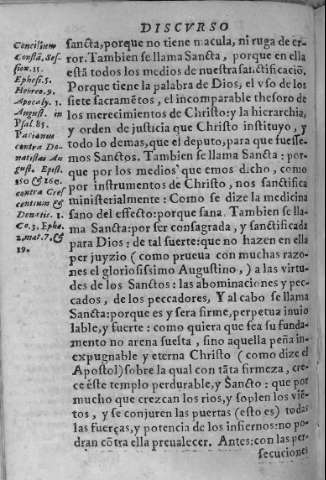 DISCVRSO
Concilium
Constã, Ses-
sion. 15.
Ephes. 5.
Hebreo. 9.
Apocaly. 1.
August. in
Psal. 85.
Parianus
contra Do-
natistas Au
gust. Epist.
contra Cres
centium &
Donatis. 2.
Co. 3. Ephe.
2, mat. 7, &
sancta, porque no tiene macula, ni ruga de er-
ror. Tambien se llama Sancta, porque en ella
està todos los medios de nuestra sanctificaciõ,
Porque tiene la palabra de Dios, el vso de los
siete sacramẽtos, el incomparable thesoro de
los merecimientos de Christo: y la hierarchia,
y orden de justicia que Christo instituyo, y
todo lo demas, que el deputo, para que fuesse-
mos Sanctos. Tambien se llama Sancta: por-
que por los medios que emos dicho, como
por instrumentos de Christo, nos sanctifica
ministerialmente: Como se dize la medicina
sano del effecto: porque sana. Tambien se lla-
ma Sancta: por ser consagrada, y sanctificada
para Dios: de tal suerte: que no hazen en ella
per juyzio (como prueua con muchas razo-
nes el gloriosissimo Augustino,) a las virtu-
des de los Sanctos: las abominaciones y pec-
cados, de los peccadores, Y al cabo se llama
Sancta: porque es y sera firme, perpetua inuio
lable, y fuerte: como quiera que sea su funda-
mento no arena suelta, sino aquella peña in-
expugnable y eterna Christo (como dize el
Apostol) sobre la qual con tãta firmeza, cre-
ce este templo perdurable, y Sancto: que por
mucho que crezcan los rios, y soplen los viẽ-
tos, y se conjuren las puertas (esto es) todas
las fuerças, y potencia de los infiernos: no po-
dran cõtra ella preualecer. Antes: con las per-
secuciones